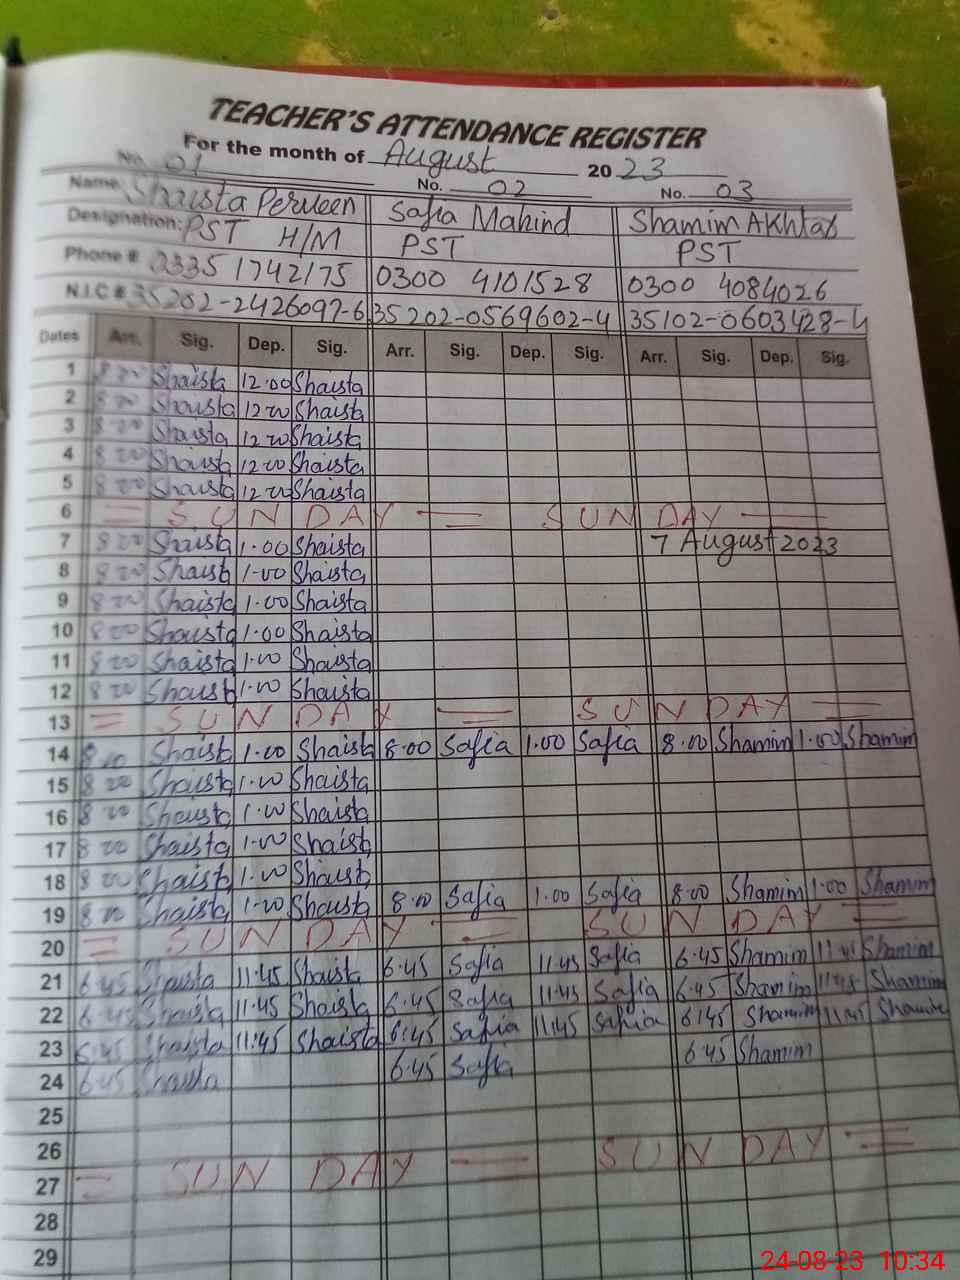 TEACHER'S ATTENDANCE REGISTER
For the month of August 2023
No. 01 No. 02 No. 03
Name: Shaista Perveen Safia Mahind Shamim Akhtar
Designation: PST H/M PST PST
Phone # 0335 1742175 0300 4101528 0300 4084026
N.I.C # 35202-2426097-6 35202-0569602-4 35102-0603428-4
Dates Arr. Sig. Dep. Sig. Arr. Sig. Dep. Sig. Arr. Sig. Dep. Sig.
1 8 00 Shaista 12.00 Shaista
2 8 00 Shaista 12 00 Shaista
3 8 00 Shaista 12 00 Shaista
4 8 00 Shaista 12 00 Shaista
5 8 00 Shaista 12 00 Shaista
6 = SUNDAY = SUNDAY =
7 8 00 Shaista 1.00 Shaista 7 August 2023
8 8 00 Shaista 1.00 Shaista
9 8 00 Shaista 1.00 Shaista
10 8 00 Shaista 1.00 Shaista
11 8 00 Shaista 1.00 Shaista
12 8 00 Shaista 1.00 Shaista
13 = SUNDAY = SUNDAY =
14 8 00 Shaista 1.00 Shaista 8.00 Safia 1.00 Safia 8.00 Shamim 1.00 Shamim
15 8 00 Shaista 1.00 Shaista
16 8 00 Shaista 1.00 Shaista
17 8 00 Shaista 1.00 Shaista
18 8 00 Shaista 1.00 Shaista
19 8 00 Shaista 1.00 Shaista 8.00 Safia 1.00 Safia 8.00 Shamim 1.00 Shamim
20 = SUNDAY = SUNDAY =
21 6.45 Shaista 11.45 Shaista 6.45 Safia 11.45 Safia 6.45 Shamim 11.45 Shamim
22 6.45 Shaista 11.45 Shaista 6.45 Safia 11.45 Safia 6.45 Shamim 11.45 Shamim
23 6.45 Shaista 11:45 Shaista 6:45 Safia 11.45 Safia 6.45 Shamim 11.45 Shamim
24 6.45 Shaista 6.45 Safia 6.45 Shamim
25
26
27 = SUNDAY = SUNDAY =
28
29
24-08-23 10:34